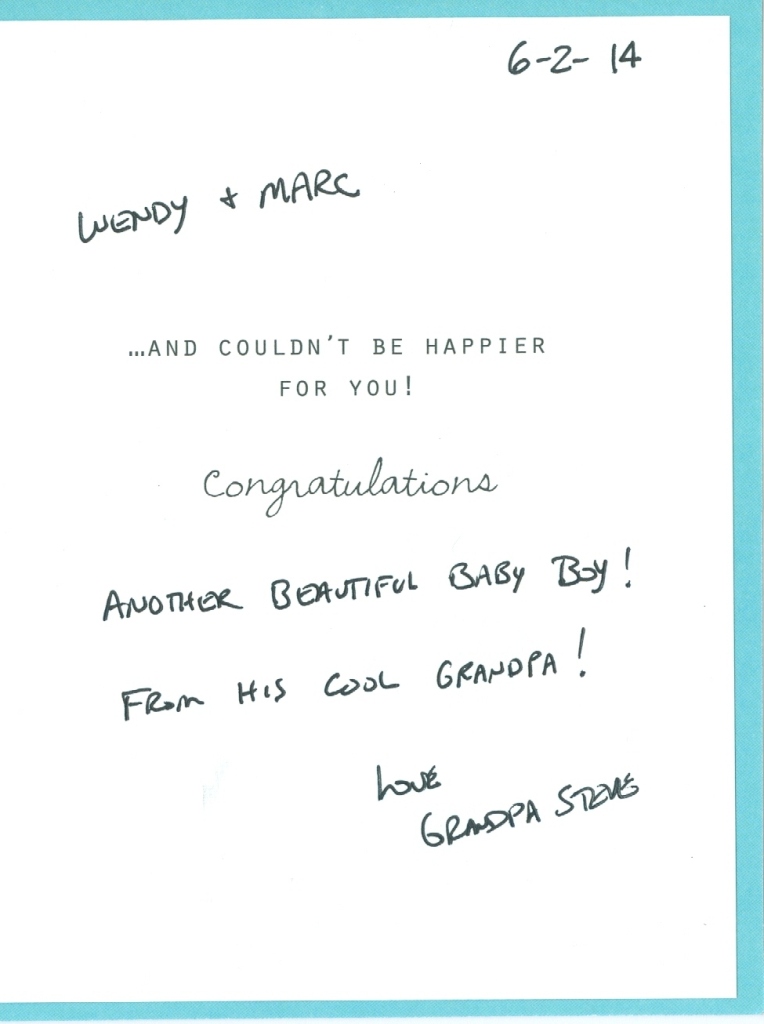 6-2-14
WENDY + MARC
...AND COULDN'T BE HAPPIER
FOR YOU!
Congratulations
ANOTHER BEAUTIFUL BABY BOY!
FROM HIS COOL GRANDPA!
LOVE
GRANDPA STEVE